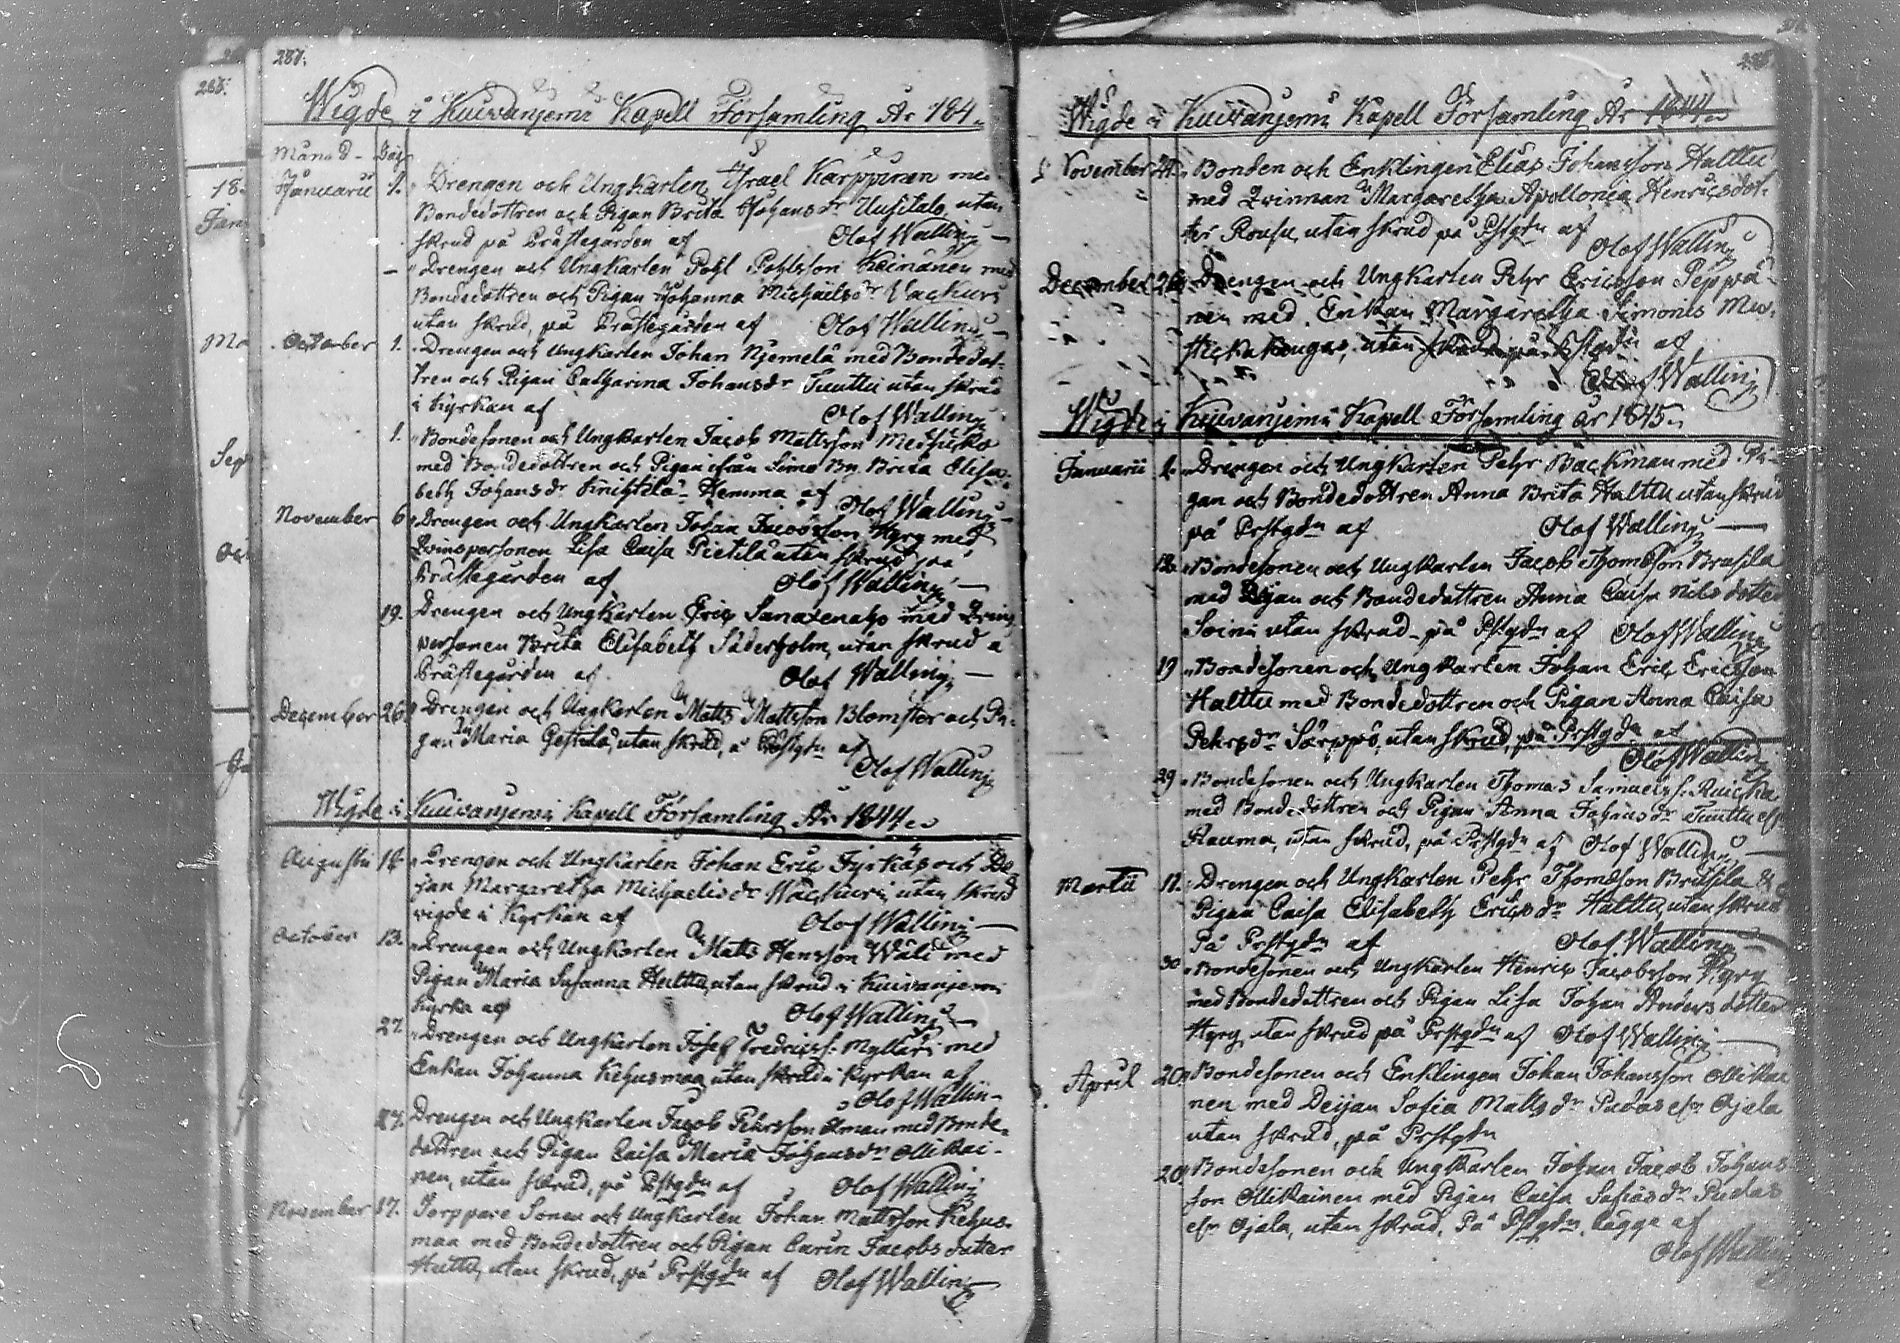 287.
Wigde i Kuivanjemi Kapell Församling År 184
Månad - Dag
Januarii 1. Drengen och Ungkarlen Israel Karppinen med
Bondedottren och Pigan Brita Johansdr Uusitalo, utan
skrud på Prästegården af Olof Walling
- Drengen och Ungkarlen Pohl Pohlsson Keinänen med
Bondedottren och Pigan Johanna Michaelsdr Wackuri
utan skrud, på Prästegården af Olof Walling
October 1. Drengen och Ungkarlen Johan Njemelä med Bondedot-
tren och Pigan Catharina Johansdr Tuuttu utan skrud
i Kyrkan af Olof Walling
1. Bondesonen och Ungkarlen Jacob Mattsson
med Bondedottren och Pigan ifrån Simo By. Brita Elisa-
beth Johansdr Hemma af Olof Walling
November 6. Drengen och Ungkarlen Johan Jacobsson Hyry med
Qvinspersonen Lisa Caisa Pietilä utan skrud på
Prästegården af Olof Walling
19. Drengen och Ungkarlen Eric med Qvins
personen Brita Elisabeth Söderholm, utan skrud å
Prästegården af Olof Walling
December 26. Drengen och Ungkarlen Matts Mattsson Blomster och Pi-
gan Maria utan skrud, å Prstgdn af
Olof Walling
Wigde i Kuivanjemi Kapell Församling År 1844
Augusti 18. Drengen och Ungkarlen Johan Eric Fyrkäs och De-
jan Margaretha Michaelisdr Wackuri utan skrud
vigde i Kyrkan af Olof Walling
October 13. Drengen och Ungkarlen Matts Hansson Wäli med
Pigan Maria Susanna Huttu, utan skrud i Kuivanjemi
Kyrka af Olof Walling
27. Drengen och Ungkarlen Josef Fredricss. Mylläri med
Enkan Johanna Kehusmaa utan skrud i Kyrkan af
Olof Wallin
27. Drengen och Ungkarlen Jacob Pehrsson Åman med Bonde-
dottren och Pigan Caisa Maria Johansdr Ollikai-
nen, utan skrud, på Pstgdn af Olof Walling
November 17. Torppare Sonen och Ungkarlen Johan Mattsson Kehus-
maa med Bondedottren och Pigan Carin Jacobsdotter
Huttu, utan skrud, på Prstgdn af Olof Walling
288.
Wigde i Kuivanjemi Kapell Församling År 1844
November 24. Bonden och Enklingen Elias Johansson Halttu
med Qvinnan Margaretha Apollonia Henricsdot-
ter Rousu, utan skrud på Pstgdn af
Olof Walling
December 26. Drengen och Ungkarlen Pehr Ericsson Peppä-
nen med Enkan Margaretha Simonis
utan skrud på Pstgdn af
Olof Walling
Wigde i Kuivanjemi Kapell Församling År 1845
Januarii 1. Drengen och Ungkarlen Pehr Bäckman med Pi-
gan och Bondedottren Anna Brita Halttu utan skrud
på Prstgdn af Olof Walling
12. Bondesonen och Ungkarlen Jacob Thomsson
med Pigan och Bondedottren Anna Caisa Nilsdotter
Soini utan skrud på Pstgdn af Olof Walling
19 Bondesonen och Ungkarlen Johan Eric Ericsson
Halttu med Bondedottren och Pigan Anna Caisa
Pehrsdr Särppö, utan skrud, på Prstgdn af
Olof Walling
29 Bondesonen och Ungkarlen Thomas Samuels s.
med Bondedottren och Pigan Anna Johansdr Tuuttu
utan skrud, på Prstgdn af Olof Walling
Martii 12. Drengen och Ungkarlen Pehr Thomsson
Pigan Caisa Elisabeth Ericsdr Halttu, utan skrud
På Prstgdn af Olof Walling
30 Bondesonen och Ungkarlen Henric Jacobsson Hyry
med Bondedottren och Pigan Lisa Johan Andersdotter
Hyry utan skrud på Prstgdn af Olof Walling
April 20. Bondesonen och Enklingen Johan Johansson Ollikai
nen med Deijan Sofia Mattsdr Pudas Ojala
utan skrud, på Prstgdn
20. Bondesonen och Ungkarlen Johan Jacob Johans
son Ollikainen med Pigan Caisa Pudas
Ojala, utan skrud, På Pstgdn, bägge af
Olof Wallin